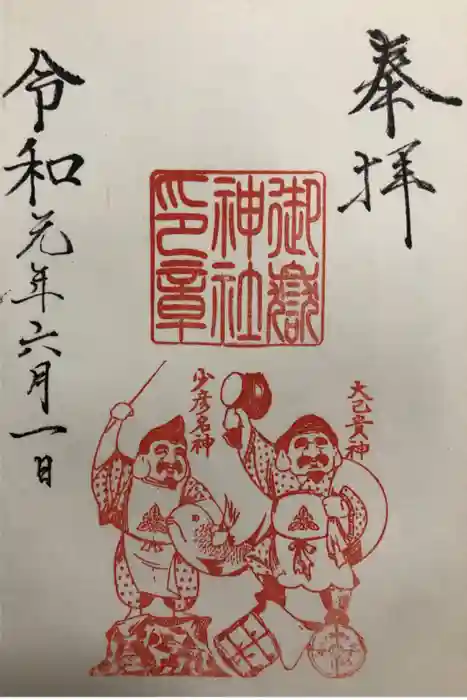 奉拝
御嶽
神社
印章
大己貴神
少彦名神
令和元年六月一日